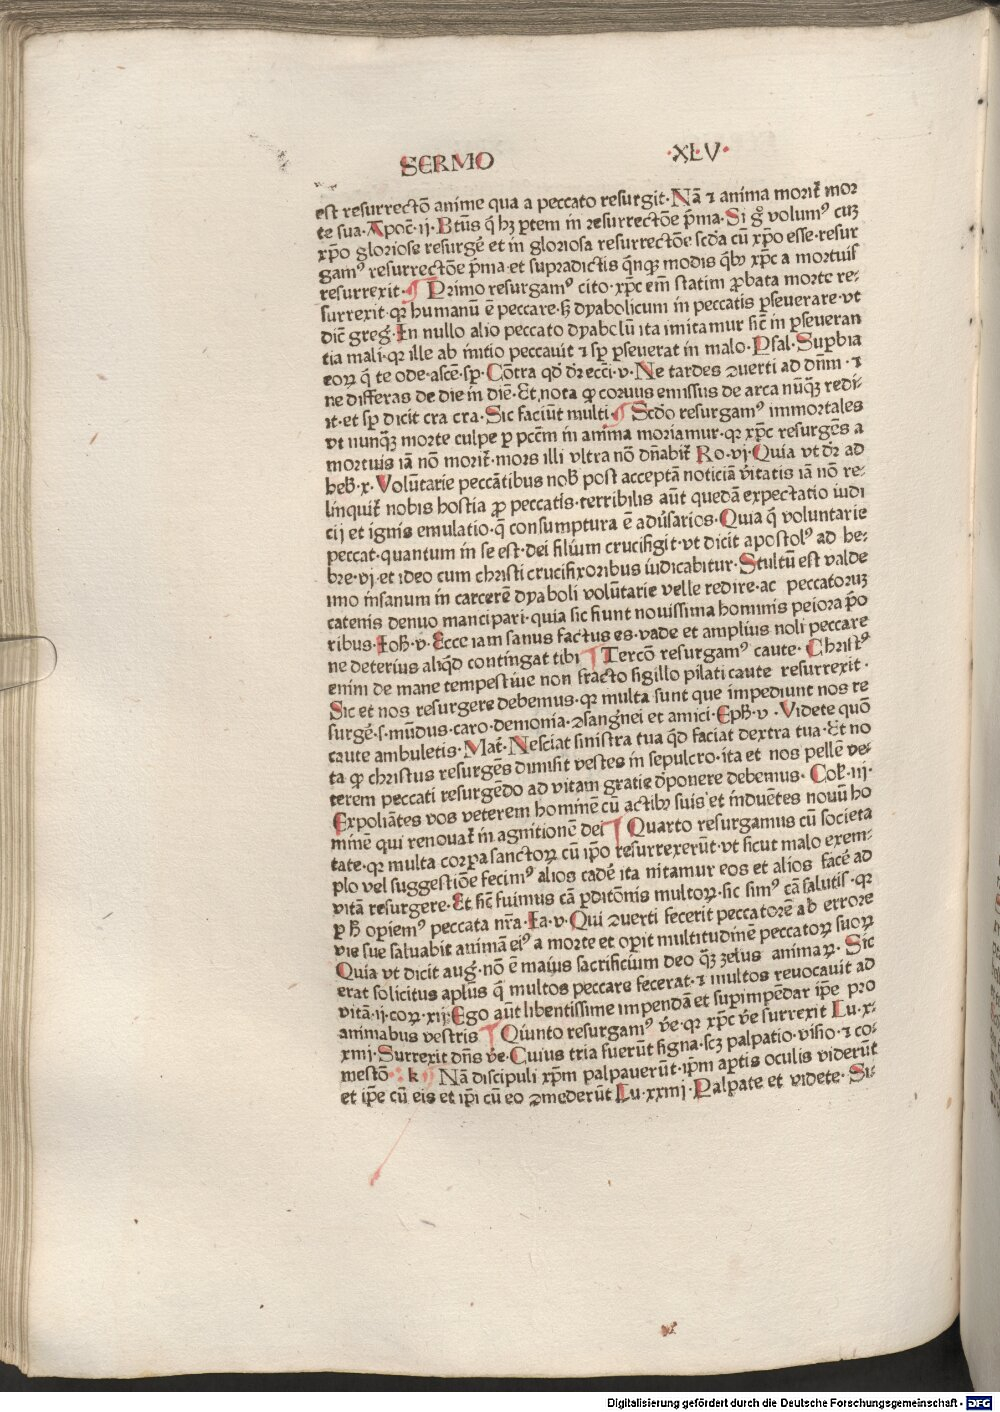 SERMO ·XLV·
est resurrectõ anime qua a peccato resurgit·Nã ⁊ anima morit̃ mor
te sua·Apoc̃·ij·Btũs q̃ hꝫ ptem in resurrectõe p̃ma·Si g̃ volumꝰ cuꝫ
xp̃o gloriose resurgẽ et in gloriosa resurrectõe scd̃a cũ xp̃o esse·resur
gamꝰ resurrectõe p̃ma·et supradictis q̃nqꝫ modis q̃bꝫ xp̃c a mortuis
resurrexit·¶ Primo resurgamꝰ cito·xp̃c em̃ statim ꝓbata morte re-
surrexit·qꝛ humanũ ẽ peccare·sꝫ dyabolicum in peccatis ꝑseuerare·vt
dic̃ greg̃·In nullo alio peccato dyabolũ ita imitamur sic̃ in ꝑseueran
tia mali·qꝛ ille ab initio peccauit ⁊ sp̃ ꝑseuerat in malo·Psal·Suꝑbia
eoꝝ q̃ te ode·ascẽ·sp̃·Cõtra qd̃ dr̃ ecci·v·Ne tardes ꝯuerti ad dñm·⁊
ne differas de die in diẽ·Et nota ꝙ coruus emissus de arca nũqꝫ redi-
it·et sp̃ dicit cra cra·Sic faciũt multi ¶ Scd̃o resurgamꝰ immortales
vt nunqꝫ morte culpe ꝑ pctm̃ in anima moriamur·qꝛ xp̃c resurgẽs a
mortuis iã nõ morit̃·mors illi vltra nõ dñabit̃ Ro·vj·Quia vt dr̃ ad
heb̃·x·Volũtarie peccãtibus nob̃ post acceptã noticiã ṽitatis iã nõ re-
linquit̃ nobis hostia ꝓ peccatis·terribilis aũt quedã expectatio iudi
cij et ignis emulatio·q̃ consumptura ẽ adũsarios·Quia q̃ voluntarie
peccat·quantum in se est·dei filium crucifigit·vt dicit apostolꝰ ad he-
bre·vj·et ideo cum christi crucifixoribus iudicabitur·Stultũ est valde
imo insanum in carcerẽ dyaboli volũtarie velle redire·ac peccatoruꝫ
catenis denuo mancipari·quia sic fiunt nouissima hominis peiora p̃o
ribus·Ioh̃·v·Ecce iam sanus factus es·vade et amplius noli peccare
ne deterius aliqd̃ contingat tibi ¶ Tercõ resurgamꝰ caute·Christꝰ
enim de mane tempestiue non fracto sigillo pilati caute resurrexit·
Sic et nos resurgere debemus·qꝛ multa sunt que impediunt nos re
surgẽ·s·mũdus·caro·demonia·ꝯsang̃nei et amici·Eph̃·v·Videte quõ
caute ambuletis·Mat̃·Nesciat sinistra tua qd̃ faciat dextra tua·Et no
ta ꝙ christus resurgẽs dimisit vestes in sepulcro·ita et nos pellẽ ve-
terem peccati resurgẽdo ad vitam gratie dp̃onere debemus·Col̃·iij·
Expoliãtes vos veterem hominẽ cũ actibꝫ suis et induẽtes nouũ ho
minẽ qui renouat̃ in agnitionẽ dei ¶ Quarto resurgamus cũ societa
tate·qꝛ multa corpa sanctoꝝ cũ ip̃o resurrexerũt·vt sicut malo exem-
plo vel suggestiõe fecimꝰ alios cadẽ ita nitamur eos et alios facẽ ad
vitã resurgere·Et sic̃ fuimus cã ꝑditõnis multoꝝ·sic simꝰ cã salutis·qꝛ
ꝑ h̃ opiemꝰ peccata nr̃a·Ia·v·Qui ꝯuerti fecerit peccatorẽ ab errore
vie sue saluabit animã eiꝰ a morte et opit multitudinẽ peccatoꝝ suoꝝ
Quia vt dicit aug̃·nõ ẽ maius sacrificium deo qꝫ zelus animaꝝ·Sic
erat solicitus aplũs q̃ multos peccare fecerat·⁊ multos reuocauit ad
vitã·ij·coꝝ·xij·Ego aũt libentissime impendã et suꝑimpẽdar ip̃e pro
animabus vestris ¶ Quinto resurgamꝰ ṽe·qꝛ xp̃c ṽe surrexit Lu·x-
xiiij·Surrexit dñs ṽe·Cuius tria fuerũt signa·scꝫ palpatio·visio·⁊ co-
mestõ·: k ¶ Nã discipuli xp̃m palpauerũt·ip̃m aptis oculis viderũt
et ip̃e cũ eis et ip̃i cũ eo ꝯmederũt Lu·xxiiij·Palpate et videte·Si-
Digitalisierung gefördert durch die Deutsche Forschungsgemeinschaft - DFG